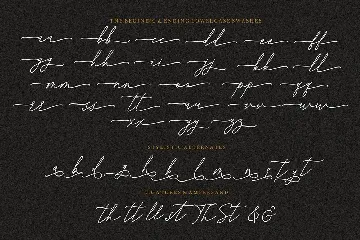 THE BEGINING & ENDING LOWERCASE SWASHES
aa bb cc dd ee ff
gg hh ii jj kk ll
mm nn oo pp qq
rr ss tt uu vv ww
xx yy zz
STYLISTIC ALTERNATES
LIGATURES & AMPERSAND
th tt ll st Th St & &